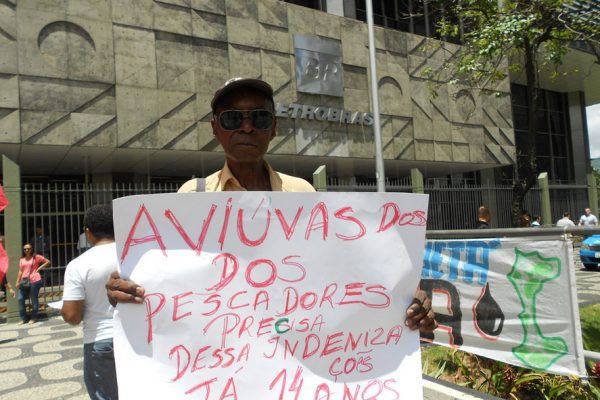 BR
PETROBRAS
AVIÚVAS DOS
DOS
PESCADORES
PRECISA
DESSA INDENIZA
ÇOẼS
JÁ 14 ANOS